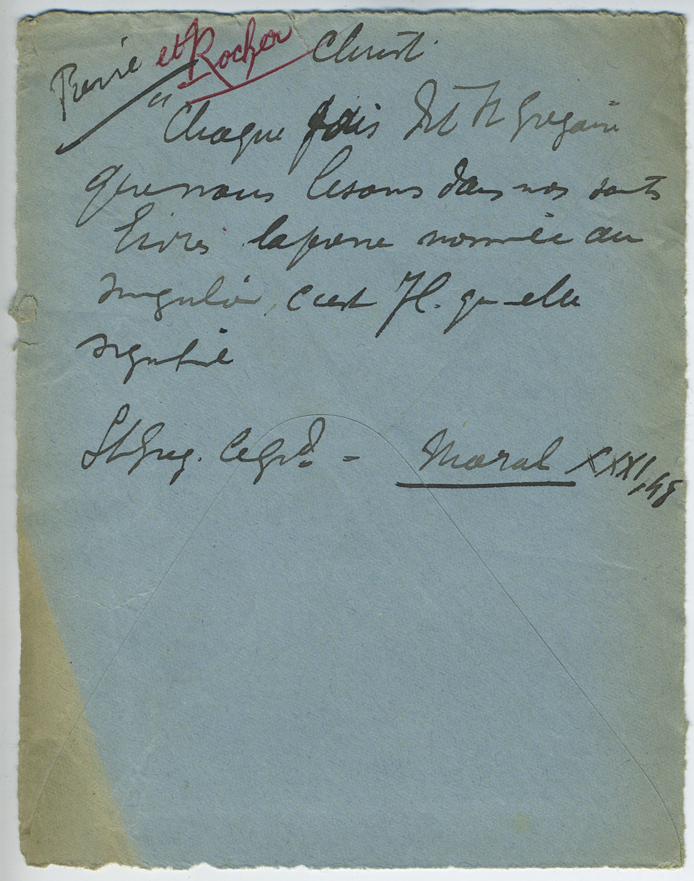 Pierre et Rocher Christ.
"Chaque fois dit St Grégoire
que nous lisons dans nos saints
livres la pierre nommée au
singulier, c'est J.C. qu'elle
signifie
St Greg. le Grd. - Moral XXXI, 48